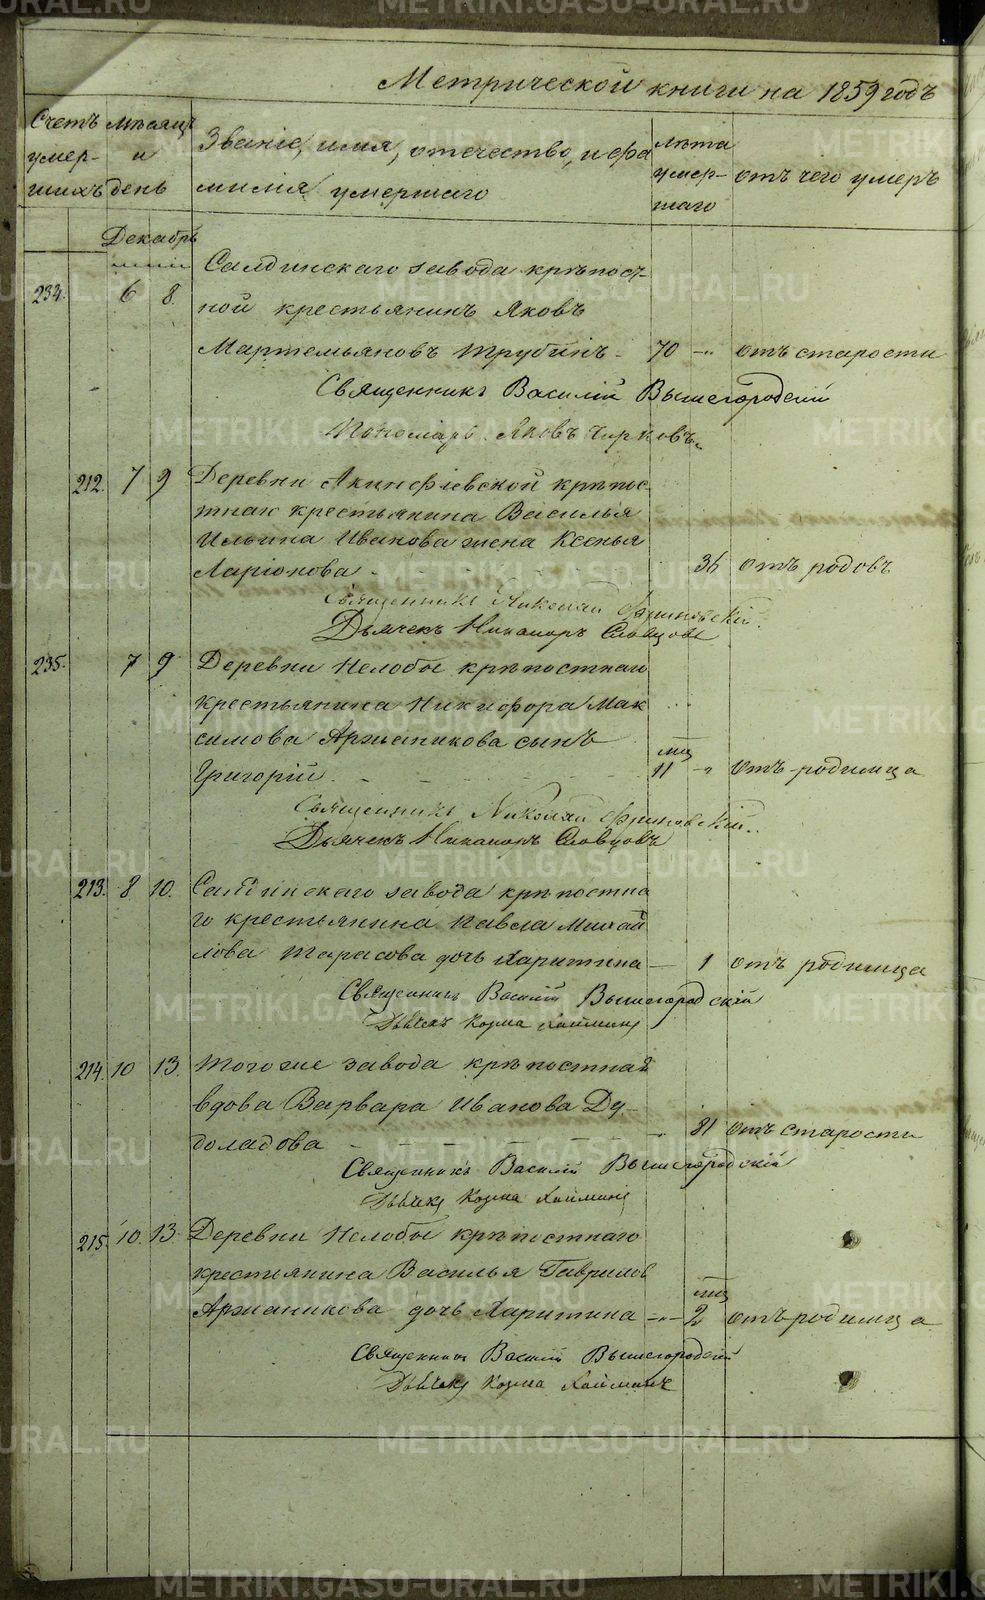 Метрической книги на 1859 годъ
Счетъ умер- шихъ
мѣсяцъ и день
Званіе, имя, отечество, и фа
милія умершаго
лѣта умер- шаго
отъ чего умеръ
Декабрь
234. 6 8. Салдинскаго завода крѣпост-
ной крестьянинъ Яковъ
Мартемьяновъ Трубинъ - 70 -"- отъ старости
Священникъ Василій Вышегородскій
Пономарь Яковъ
212. 7 9 Деревни Акинфіевской крѣпос-
тнаго крестьянина Василья
Ильина Иванова жена Ксенья
Ларіонова - - - 36 отъ родовъ
Священникъ Николай
Дьячекъ Никаноръ Словцовъ
235. 7 9 Деревни Нелобы крѣпостнаго
крестьянина Никифора Мак
симова Аржаникова сынъ
Григорій. - - - мц 11 -"- отъ родимца
Священникъ Николай
Дьячекъ Никаноръ Словцовъ
213. 8 10. Салдинскаго завода крѣпостна
го крестьянина Павла Михай
лова Тарасова дочь Харитина — 1 отъ родимца
Священникъ Василій Вышегородскій
Дьячекъ Козма
214. 10 13. Тогоже завода крѣпостная
вдова Варвара Иванова Ду-
доладова - - - 81 отъ старости
Священникъ Василій Вышегородскій
Дьячекъ Козма
215. 10 13. Деревни Нелобы крѣпостнаго
крестьянина Василья Гаврилов
Аржаникова дочь Харитина -"- мц 2 отъ родимца
Священникъ Василій Вышегородскій
Дьячекъ Козма
METRIKI.GASO-URAL.RU